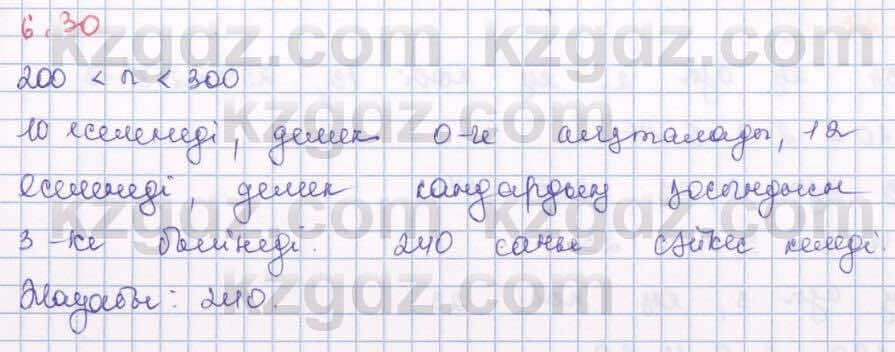 6.30
200 < n < 300
10 еселенеді, демек 0-ге аяқталады, 12
еселенеді, демек сандардың қосындысы
3-ке бөлінеді. 240 саны сәйкес келеді.
Жауабы: 240.
kzgdz.com kzgdz.com
kzgdz.com kzgdz.com
kzgdz.com kzgdz.com